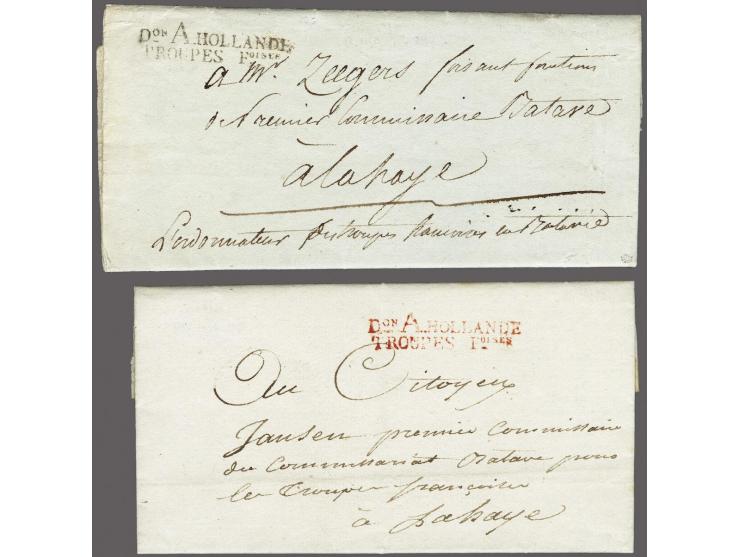 DON A. HOLLANDE
TROUPES FOISES
a Mr. Zeegers faisant fonctions
de Premier Commissaire Batave
à lahaye
L'ordonnateur des troupes francaises en Batavie
DON A. HOLLANDE
TROUPES FOISES
Au Citoyen
Jansen premier Commissaire
du Commissariat Batave pour
les Troupes françaises
à Lahaye